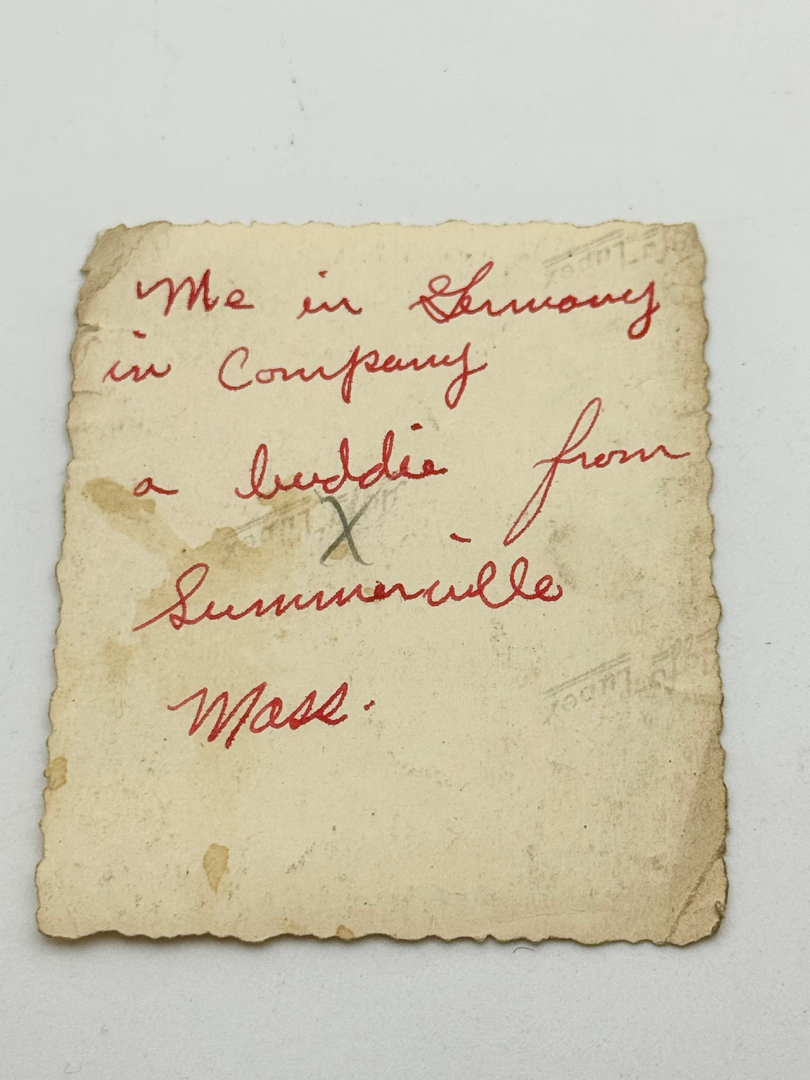 Me in Germany
in Company
a buddie from
X
Summerville
Mass.